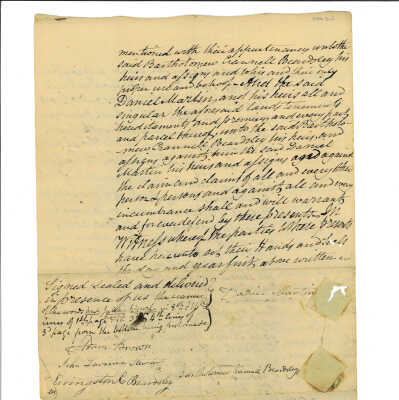 mentioned with their appurtenancy unto the
said Bartholomew Crannell Beardsley his
heirs and assigns and to his and their only
proper use and behoof – And the said
Daniel Martin and his heirs all and
singular the aforesaid lands tenements
hereditaments and premises and every part
and parcel thereof unto the said Bartholo-
mew Crannell Beardsley his heirs and
assigns against him the said Daniel
Martin his heirs and assigns and against
the claim and claims of all and every other
person & persons and against all and every
encumbrance shall and will warrant
and forever defend by these presents. In
Witness whereof the parties to these Presents
have hereunto set their Hands and Seals
the day and year first above written
Signed Sealed and delivered
in presence of us the
lines of 1st page
3d page from the bottom being first made
Daniel Martin
John Brown
Bartholomew Crannell Beardsley
Livingston C Beardsley